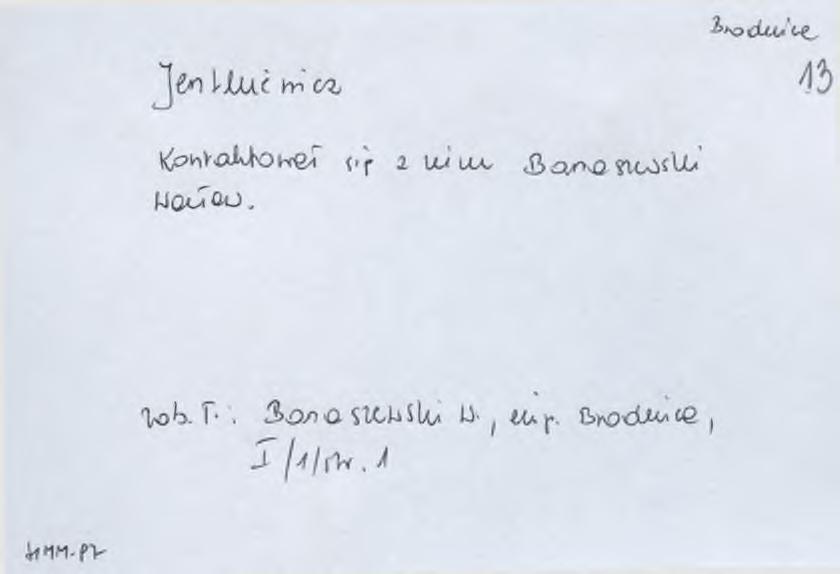 Brodnica
13
Jentkiewicz
Kontaktował się z nim Banaszewski
Wacław.
zob. T.: Banaszewski W., insp. Brodnica,
I/1/str. 1